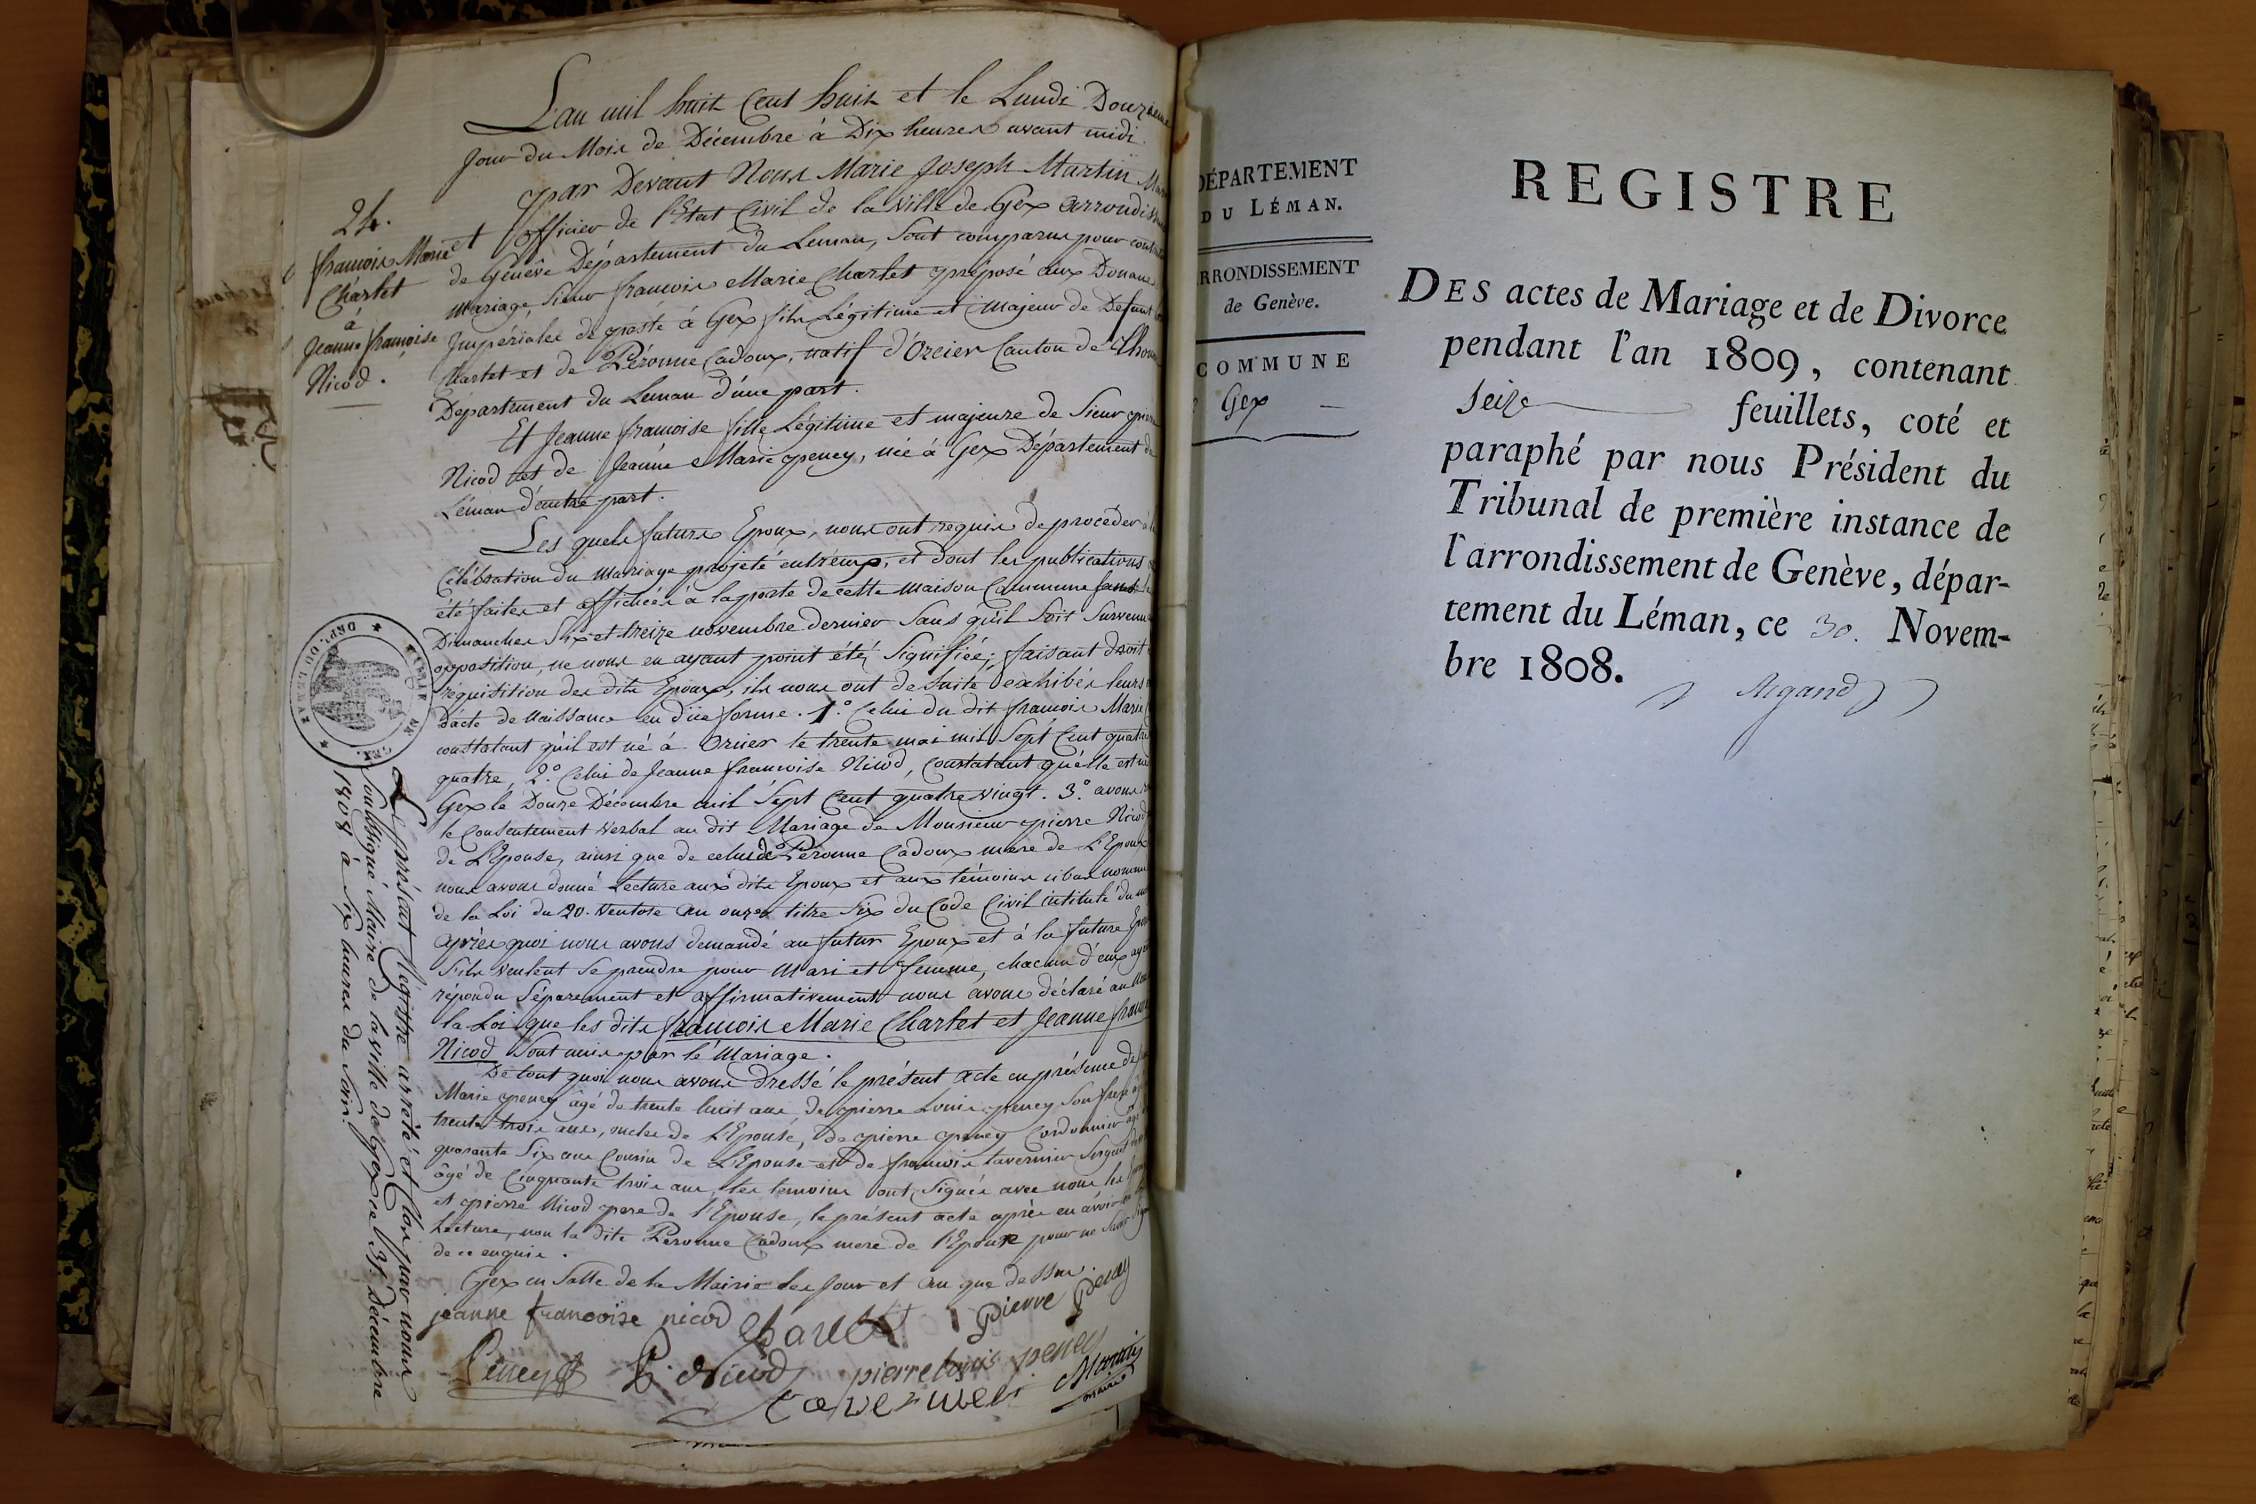 L'an mil huit Cent huit et le Lundi Douzieme
Jour du Mois de Décembre à Dix heures avant midi
par Devant Nous Marie Joseph Martin
et officier de l'Etat Civil de la ville de Gex arrondisse
de Genêve Département du Leman, Sont comparus pour
Mariage, Sieur françois Marie Charlet préposé aux Douanes
Impériales de poste à Gex fils Légitime et Majeur de Defunt
Charlet et de Péronne Cadoux, natif d'Orcier Canton de Thonon
Département du Leman d'une part.
Et Jeanne françoise fille Légitime et majeure de Sieur pierre
Nicod et de Jeanne Marie peney, née à Gex Département de
Léman d'autre part.
Les quels futurs Epoux, nous ont requis de procéder à
Célébration du Mariage projeté entr'eux, et dont les publications
été faites et affichées à la porte de cette Maison Commune
Dimanches Six et treize novembre dernier Sans qu'il Soit Survenu
opposition, ne nous en ayant point été Signifiée; faisant droit
réquisition des dits Epoux, ils nous ont de Suite exhibés leurs
D'acte de Naissance en düe forme. 1.º Celui du dit françois Marie
constatant qu'il est né à Orcier le trente mai mil Sept Cent quatre
quatre, 2.º Celui de Jeanne françoise Nicod, Constatant qu'elle est née
Gex le Douze Décembre mil Sept Cent quatre vingt. 3.º avons
le Consentement verbal au dit Mariage de Monsieur pierre Nicod
de L'Epouse, ainsi que de celui de Péronne Cadoux mere de L'Epoux
nous avons donné Lecture aux dits Epoux et aux témoins ci bas nommés
de la Loi du 20. Ventose an onze titre Six du Code Civil intitulé du
après quoi nous avons demandé au futur Epoux et à la future Epouse
S'ils veulent Se prendre pour Mari et femme, chacun d'eux ayant
répondu Séparement et affirmativement nous avons déclaré au Nom
la Loi que les dits françois Marie Charlet et Jeanne françoise
Nicod Sont unis par le Mariage.
De tout quoi nous avons Dressé le présent acte en présence de
Marie peney âgé de trente huit ans, de pierre Louis peney Son frere
trente trois ans, oncles de L'Epouse, de pierre peney Cordonnier âgé
quarante Six ans Cousin de L'Epouse et de françois tavernier Sergent
âgé de Cinquante trois ans, les temoins ont Signés avec nous les
et pierre Nicod pere de l'Epouse, le présent acte après en avoir
Lecture, non la dite Péronne Cadoux mere de l'Epoux pour ne Savoir Signer
de ce enquis.
Gex en Salle de la Mairie les Jour et an que dessus.
jeanne françoise nicod Charlet pierre Peney
Peney P. Nicod pierre louis peney
tavernier Martin
maire
24.
françois Marie
Charlet
à
Jeanne françoise
Nicod.
MAIRIE DE GEX
DEPT. DU LEMAN
Le présent Régistre arrêté et Clos par nous
Soussigné Maire de la ville de Gex ce 31 Décembre
1808 à Six heures du Soir.
DÉPARTEMENT
DU LÉMAN.
RRONDISSEMENT
de Genève.
COMMUNE
Gex
REGISTRE
DES actes de Mariage et de Divorce
pendant l'an 1809, contenant
Seize feuillets, coté et
paraphé par nous Président du
Tribunal de première instance de
l'arrondissement de Genève, dépar-
tement du Léman, ce 30. Novem-
bre 1808.
Argand